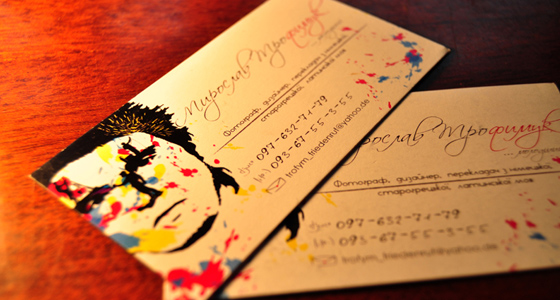 Мирослав Трофимук
Фотограф, дизайнер, переклади з німецької,
старогрецька, латинська мов
097-632-71-79
093-67-55-3-55
trofym_friedenruf@yahoo.de
Мирослав Трофимук
Фотограф, дизайнер, переклади з німецької,
старогрецької, латинської мов
097-632-71-79
093-67-55-3-55
trofym_friedenruf@yahoo.de